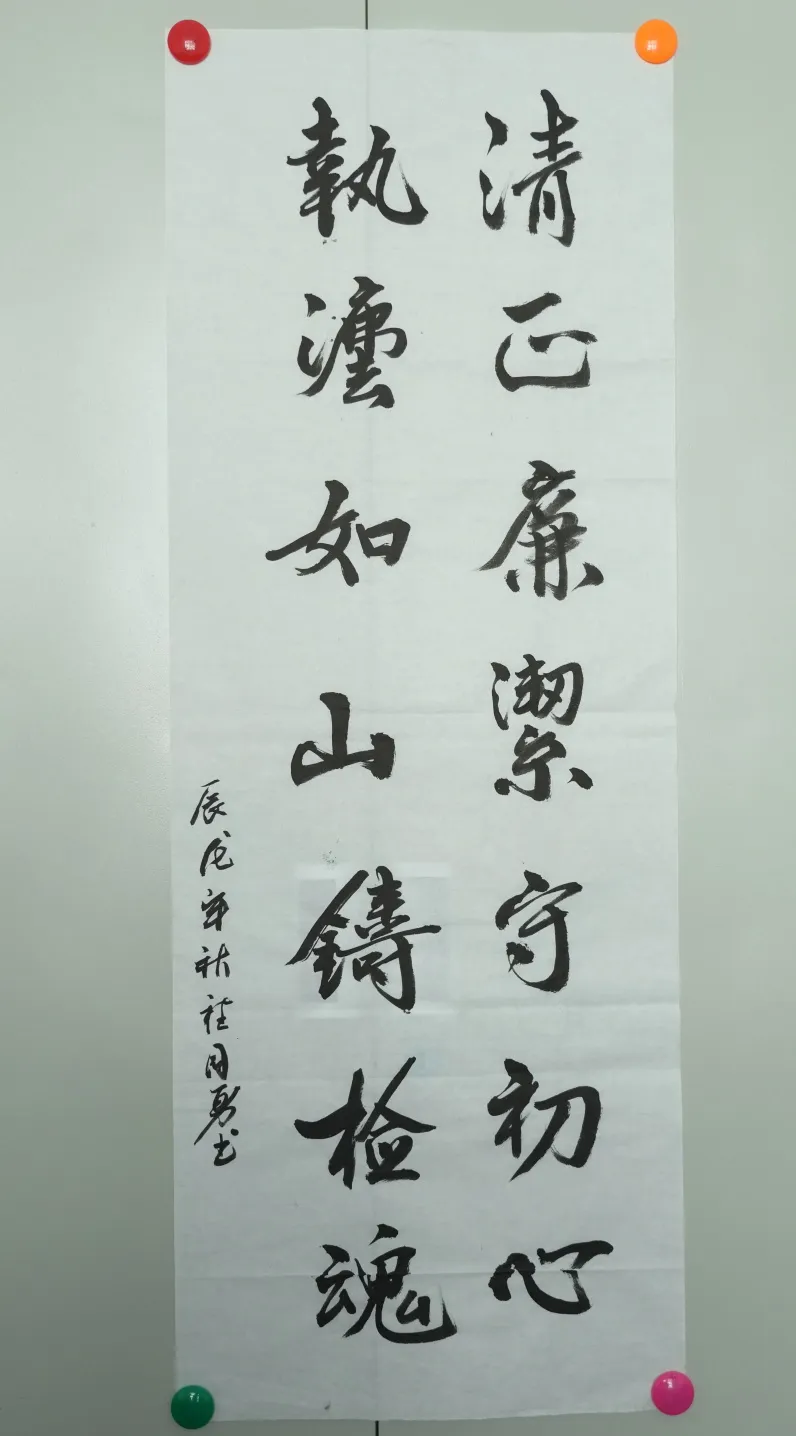 清正廉潔守初心
執灋如山鑄检魂
辰龙年秋勇书